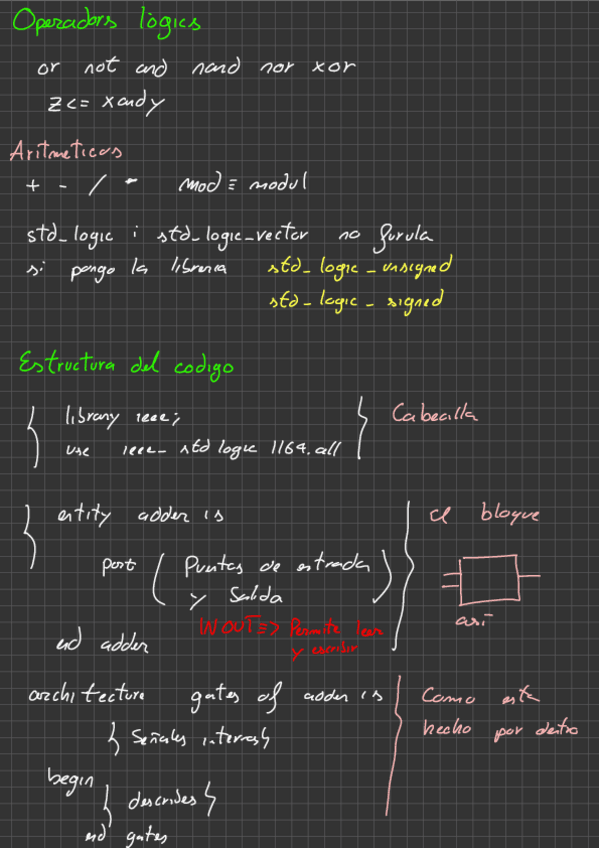 Operadors lògics
or not and nand nor xor
z <= x and y
Aritmeticos
+ - / * mod ≡ modul
std_logic i std_logic_vector no furula
si pongo la libreria std_logic_unsigned
std_logic_signed
Estructura del codigo
library ieee;
use ieee_std logic 1164.all
Cabecilla
entity adder is
port ( Puertas de entrada
y Salida )
INOUT => Permite leer
y escribir
end adder
el bloque
así
architecture gates of adder is
{ Señales internas }
begin
{ describes }
end gates
Como esta
hecho por dentro